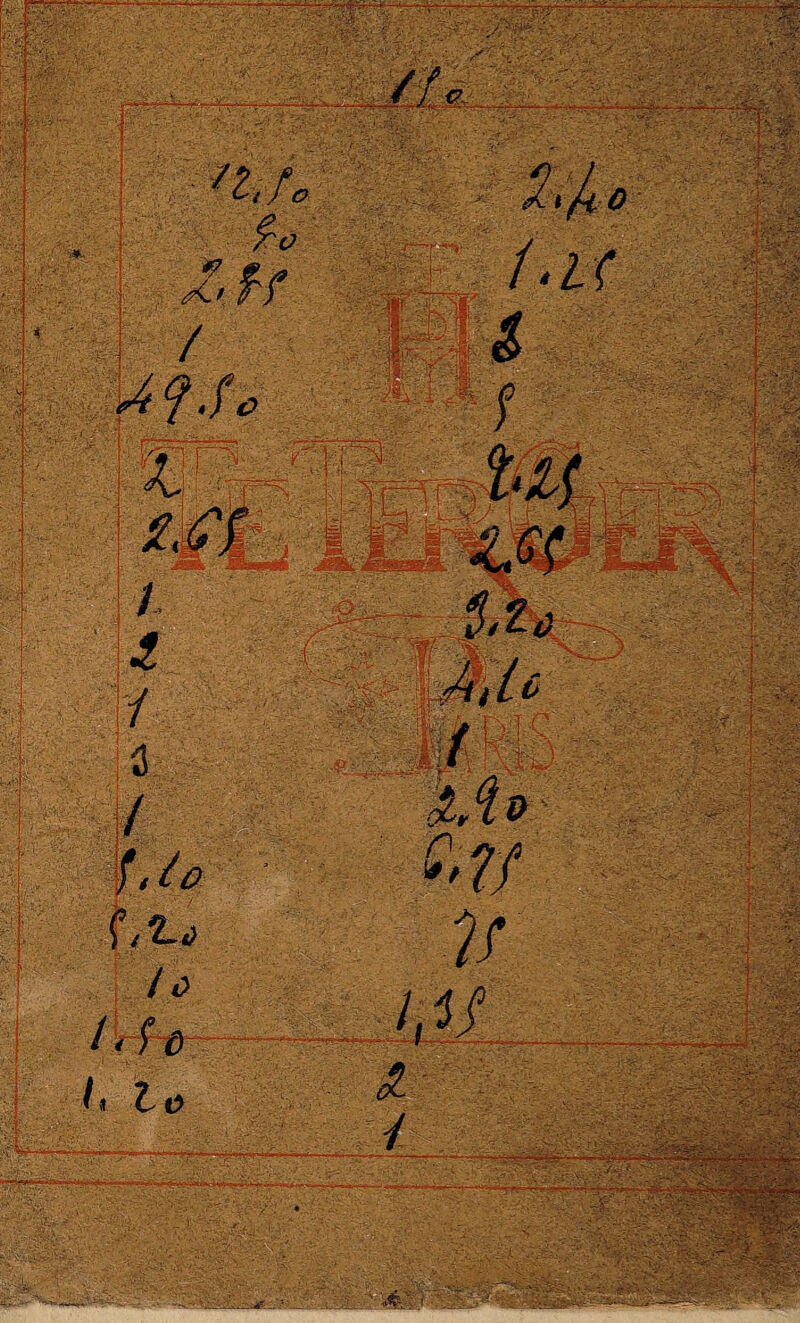 150
12,50
50
2,55
1
49.50
2
2.65
1
2
1
3
1
5,10
5,20
10
1,50
1,20
2,40
1,25
3
5
2,65
3,20
4,10
1
2,90
6,75
75
1,35
2
1
H
PETERGER
PARIS